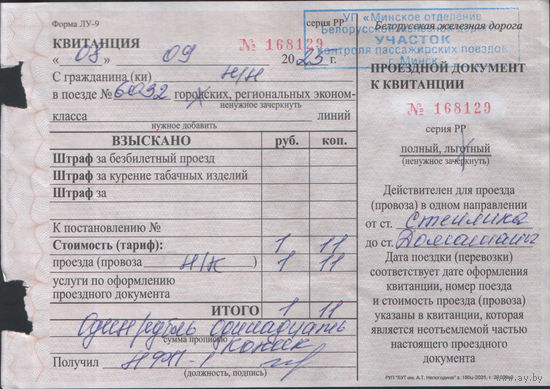 Форма ЛУ-9
серия РР
КВИТАНЦИЯ
№ 168129
« 03 » 09 2023 г.
С гражданина (ки) Н/Н
в поезде № 6032 городских, региональных эконом-
ненужное зачеркнуть
класса линий
нужное добавить
ВЗЫСКАНО руб. коп.
Штраф за безбилетный проезд
Штраф за курение табачных изделий
Штраф за
К постановлению №
Стоимость (тариф): 1 11
проезда (провоза Н/К ) 1 11
услуги по оформлению
проездного документа
ИТОГО 1 11
Один рубль одинадцать
сумма прописью
копеек
Получил
(должность, подпись)
УП «Минское отделение
Белорусской железной дороги»
УЧАСТОК
контроля пассажирских поездов
г. Минск
Белорусская железная дорога
ПРОЕЗДНОЙ ДОКУМЕНТ
К КВИТАНЦИИ
№ 168129
серия РР
полный, льготный
(ненужное зачеркнуть)
Действителен для проезда
(провоза) в одном направлении
от ст.
до ст.
Дата поездки (перевозки)
соответствует дате оформления
квитанции, номер поезда
и стоимость проезда (провоза)
указаны в квитанции, которая
является неотъемлемой частью
настоящего проездного
документа